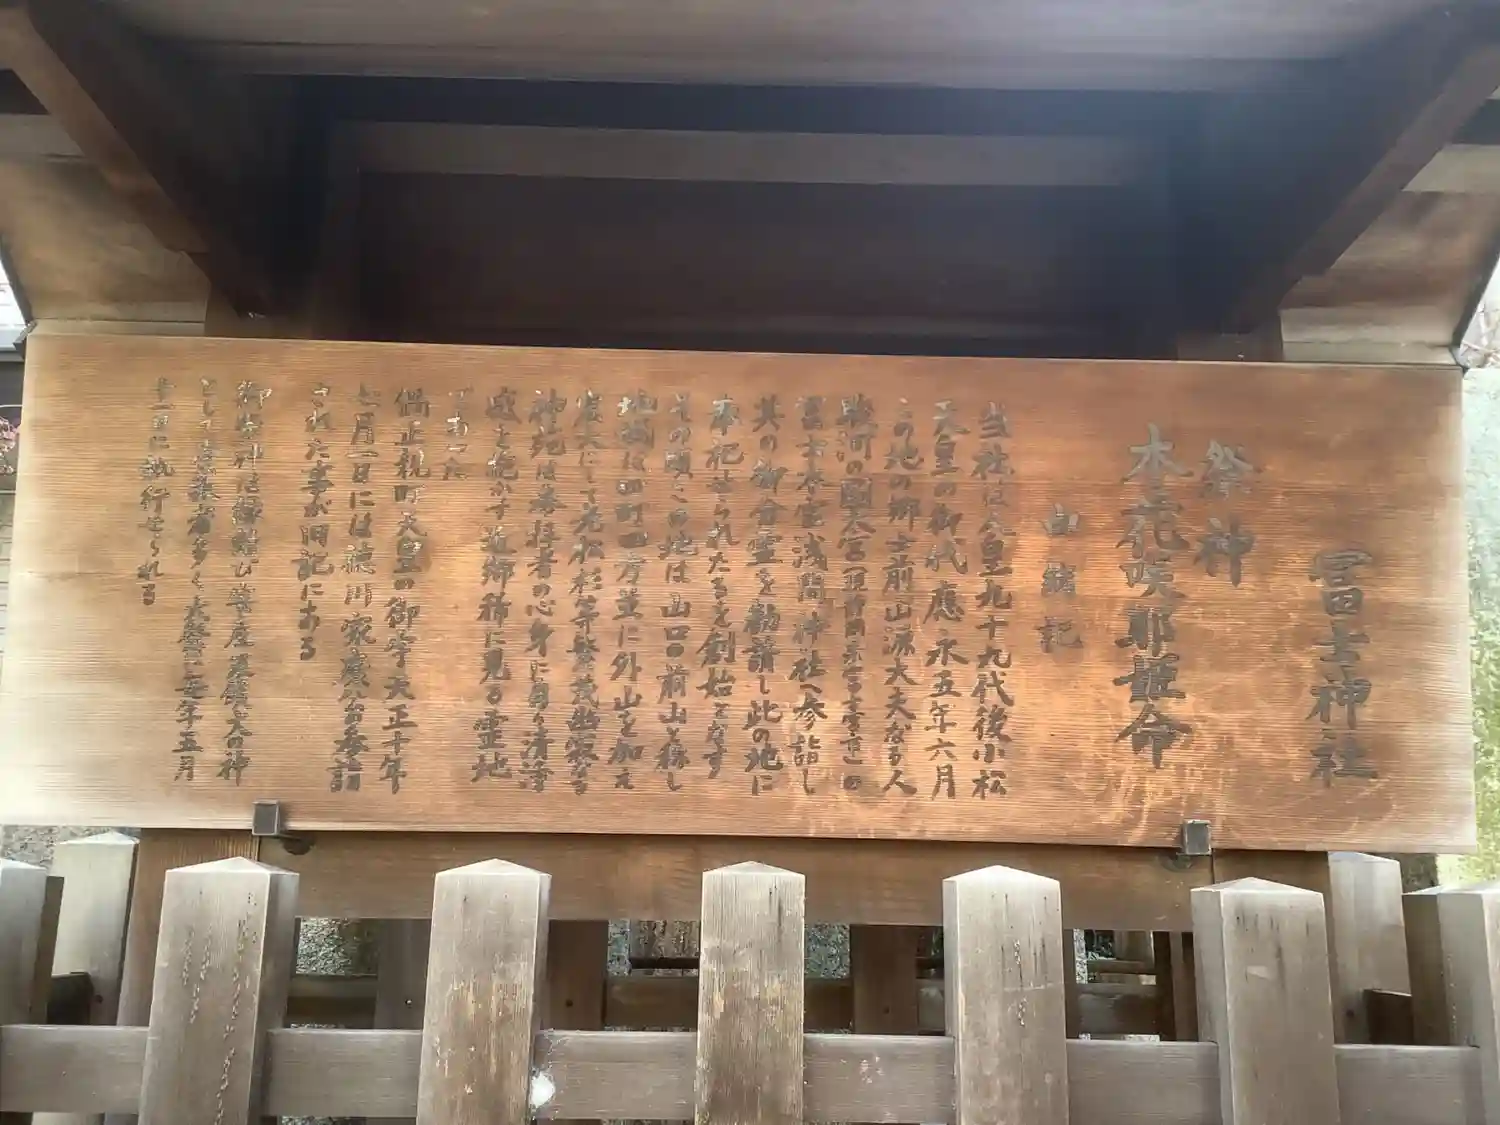 冨士神社
祭神
木花咲耶姫命
由緒記
当社は人皇九十九代後小松
天皇の御代應永五年六月
この地の郷士前山源大夫なる人
駿河の國大宮(現静岡県富士宮市)の
冨士本宮浅間神社へ参詣し
其の御分霊を勧請し此の地に
奉祀せられたるを創始となす
その頃この地は山口前山と称し
地域は四町四方並に外山を加え
巖大にして老松杉等繁茂幽寂なる
神苑は参拝者の心身に自り清澪
感を抱かす近郷稀に見る霊地
であった
偶正親町天皇の御宇天正十年
七月一日には徳川家康公当参詣
された事が旧記にある
御祭神は縁結び安産火鎮め の神
として崇敬者多く大祭は毎年五月
三十一日に執行せられる